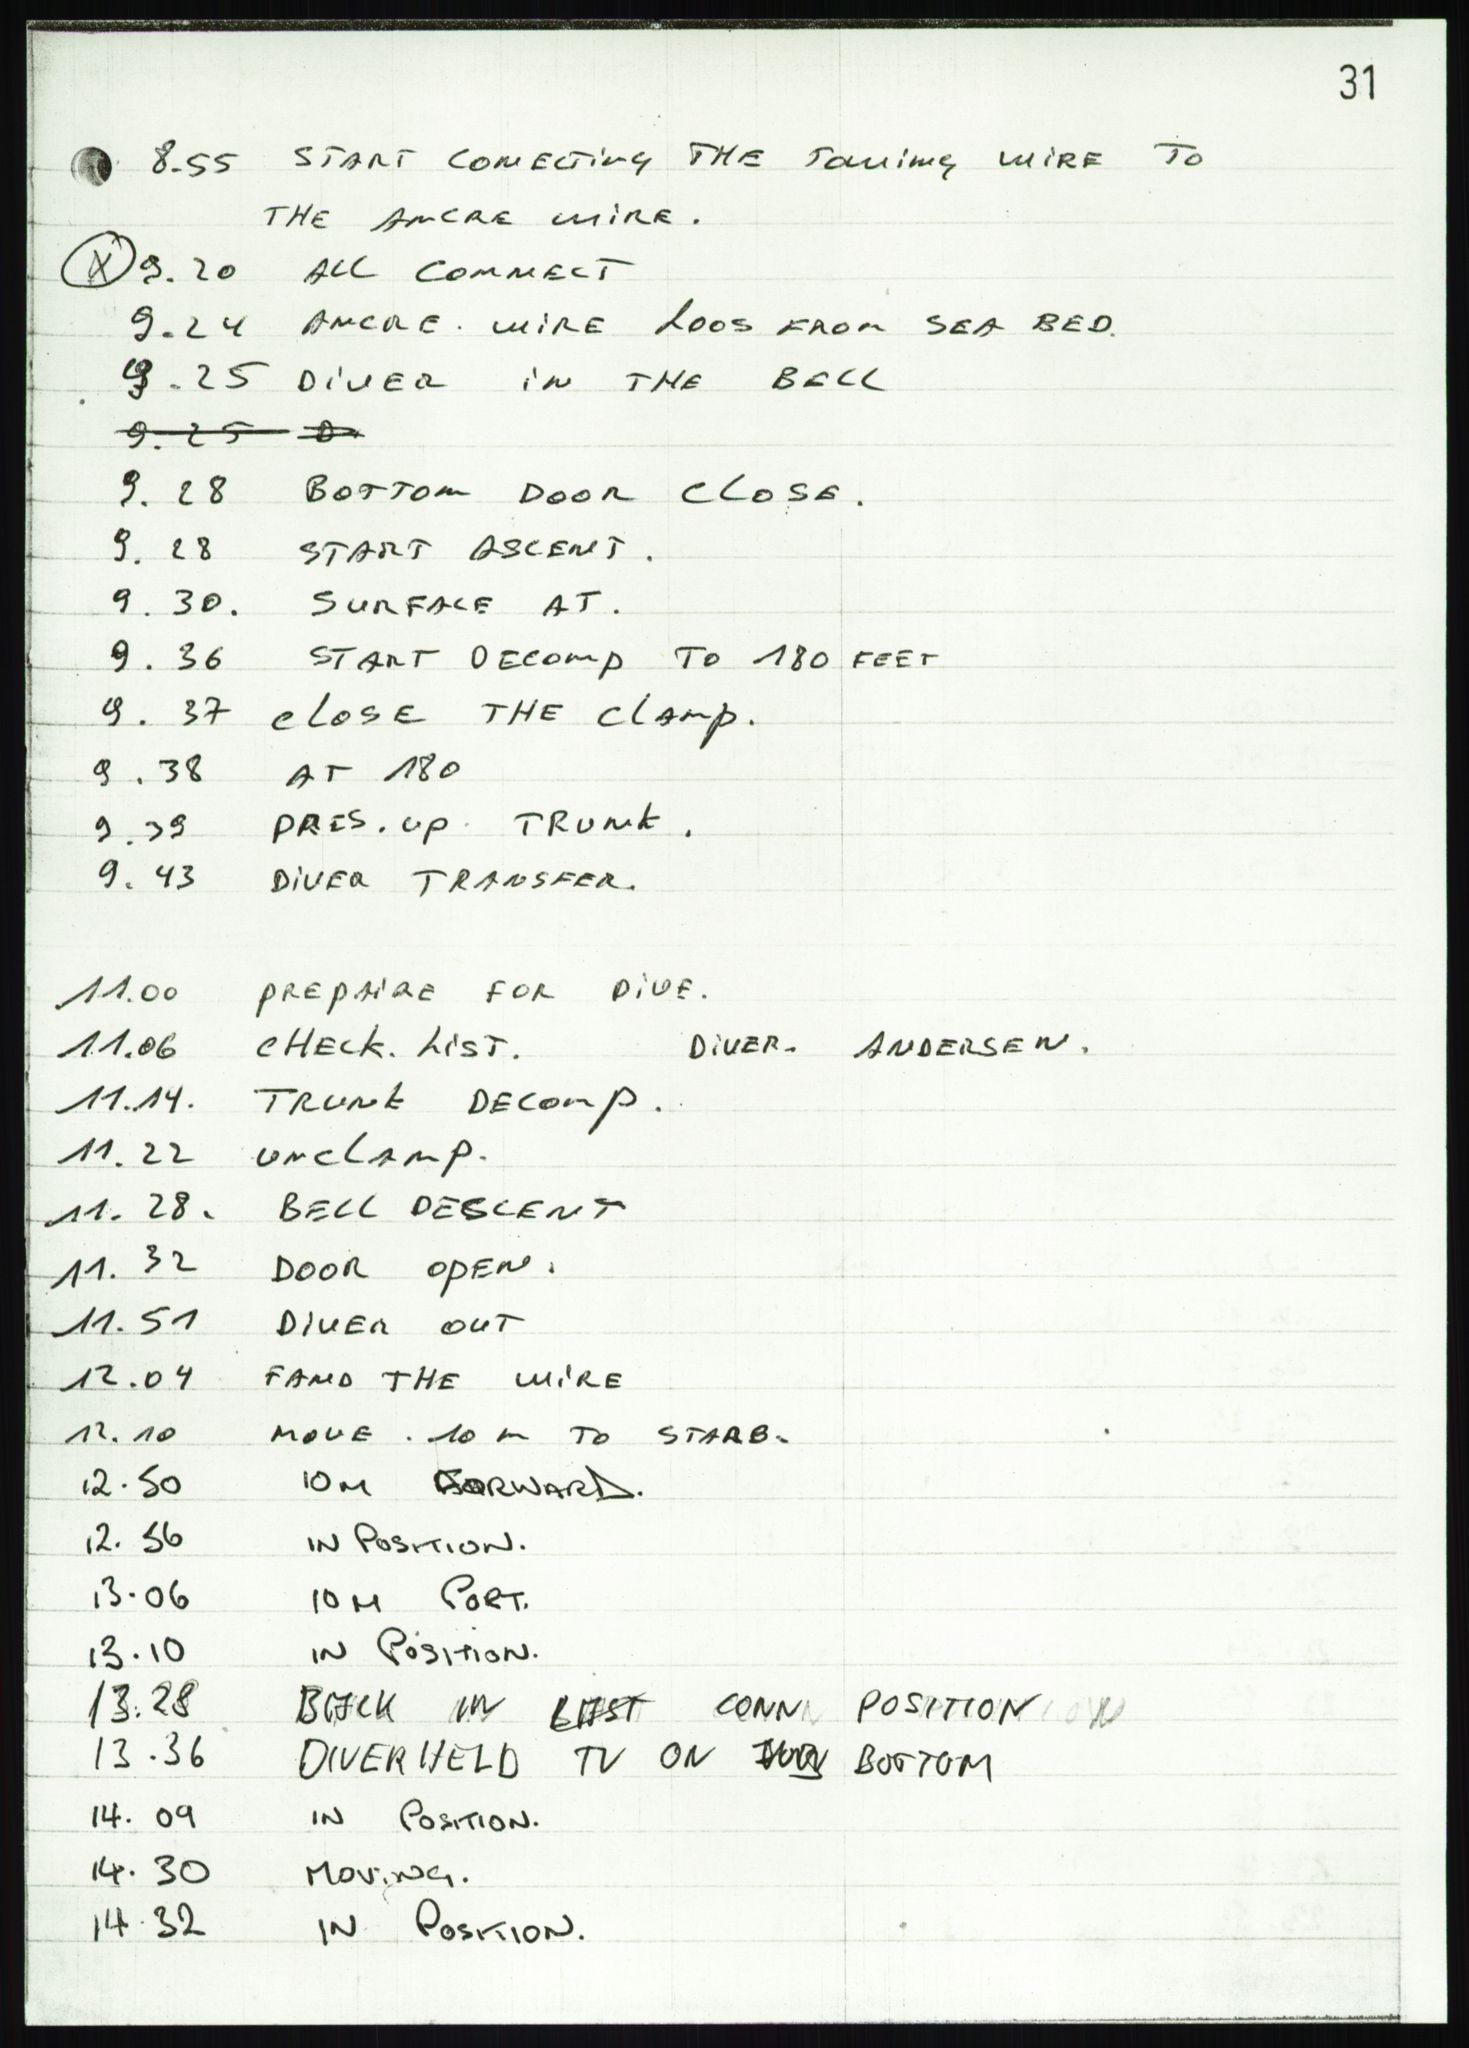 31
8.55 START CONECTING THE TOWING WIRE TO
THE ANCRE WIRE.
X 9.20 ALL CONNECT
9.24 ANCRE. WIRE LOOS FROM SEA BED.
9.25 DIVER IN THE BELL
9.25 D
9.28 BOTTOM DOOR CLOSE.
9.28 START ASCENT.
9.30. SURFACE AT.
9.36 START DECOMP TO 180 FEET
9.37 CLOSE THE CLAMP.
9.38 AT 180
9.39 PRES. UP TRUNK.
9.43 DIVER TRANSFER.
11.00 PREPAIRE FOR DIVE.
11.06 CHECK. LIST. DIVER. ANDERSEN.
11.14. TRUNK DECOMP.
11.22 UNCLAMP.
11.28. BELL DESCENT
11.32 DOOR OPEN.
11.51 DIVER OUT
12.04 FAND THE WIRE
12.10 MOVE. 10 M TO STARB.
12.50 10M FORWARD.
12.56 IN POSITION.
13.06 10M PORT.
13.10 IN POSITION.
13.28 BACK IN LAST CONN POSITION
13.36 DIVERHELD TV ON BOTTOM
14.09 IN POSITION.
14.30 MOVING.
14.32 IN POSITION.